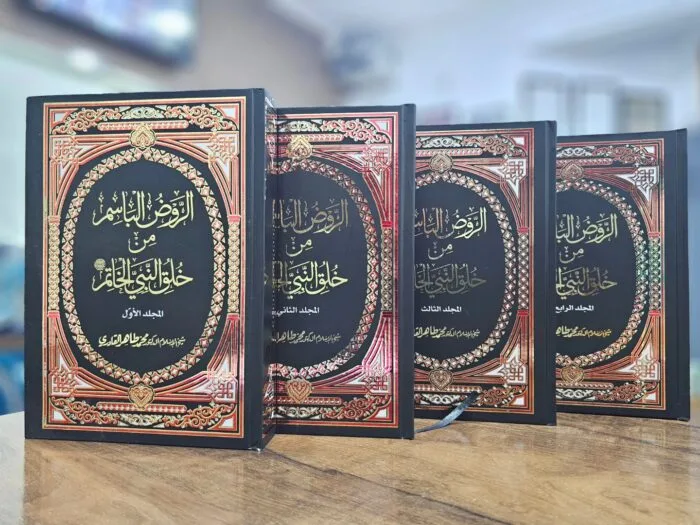 الرَّوضُ البَاسِم
مِن
خُلُقِ النَّبِيِّ الخَاتَم ﷺ
المجلد الأوّل
شيخ الإسلام الدكتور محمد طاهر القادري
الرَّوضُ البَا
مِن
خُلُقِ النَّبِيِّ
المجلد الثاني
شيخ الإسلام الدكتور محمد طاهر
الرَّوضُ البَا
مِن
خُلُقِ النَّبِيِّ الخَا
المجلد الثالث
شيخ الإسلام الدكتور محمد طاهر القا
الرَّوضُ البَا
مِن
خُلُقِ النَّبِيِّ الخَا
المجلد الرابع
الإسلام الدكتور محمد طاهر القادري